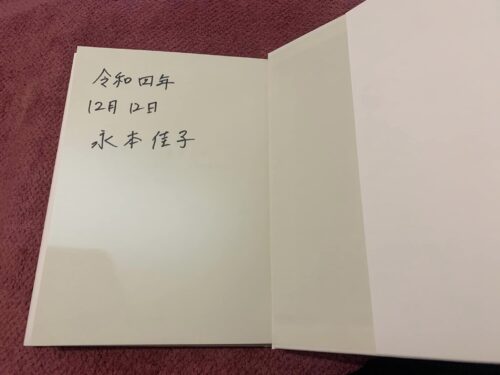 令和四年
12月12日
永本佳子